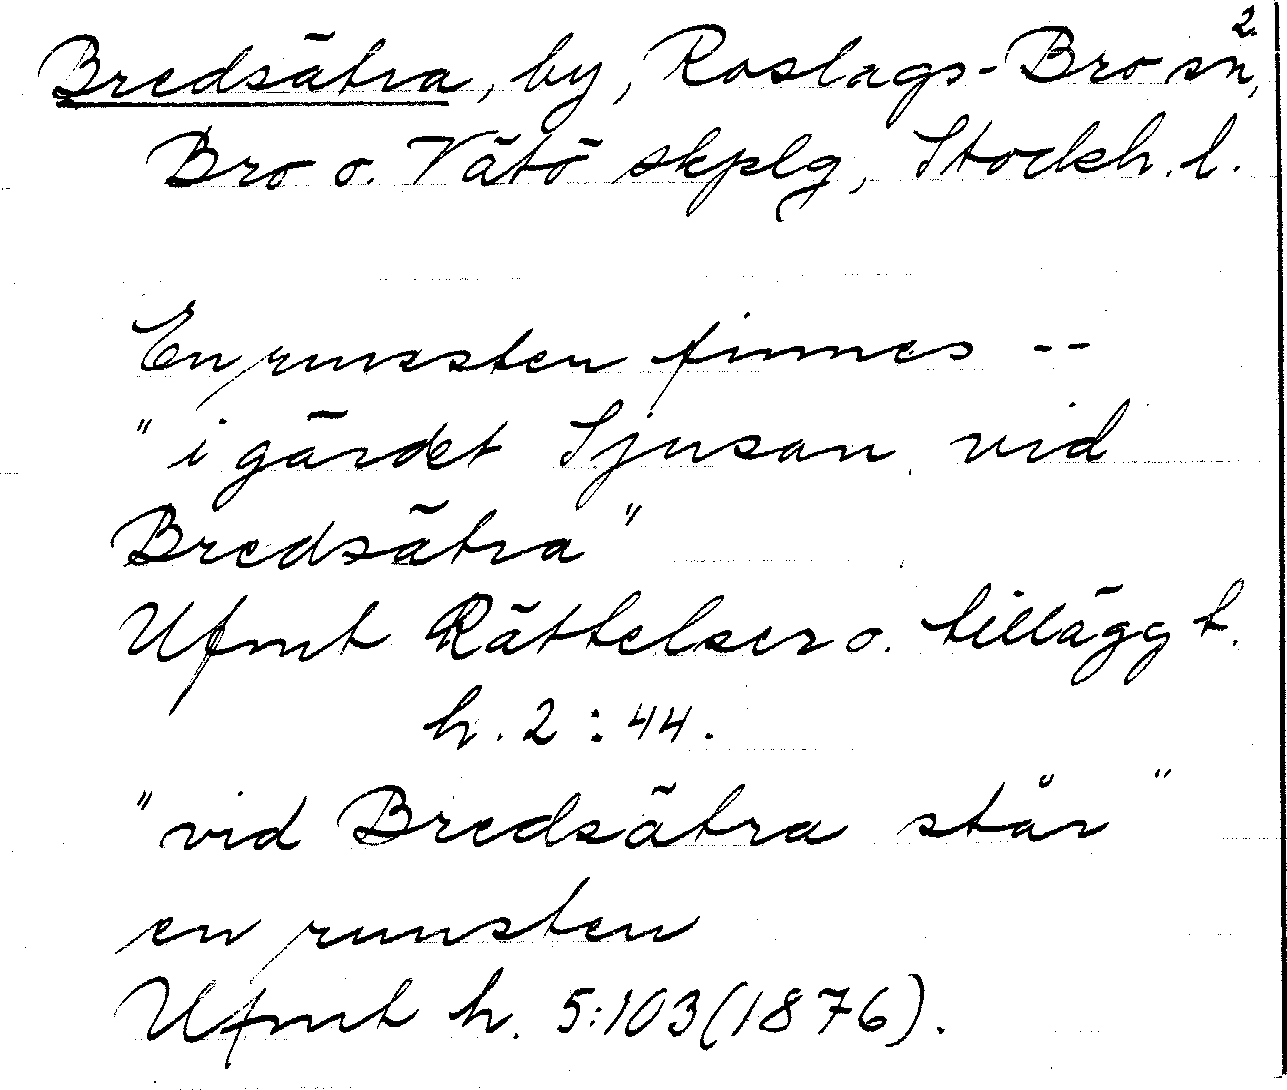 2.
Bredsätra, by, Roslags-Bro sn,
Bro o. Vätö skplg, Stockh. l.
En runsten finnes --
"i gärdet Sjusan vid
Bredsätra"
Ufmt Rättelser o. tillägg t.
h. 2:44.
"vid Bredsätra står"
en runsten
Ufmt h. 5:103 (1876).